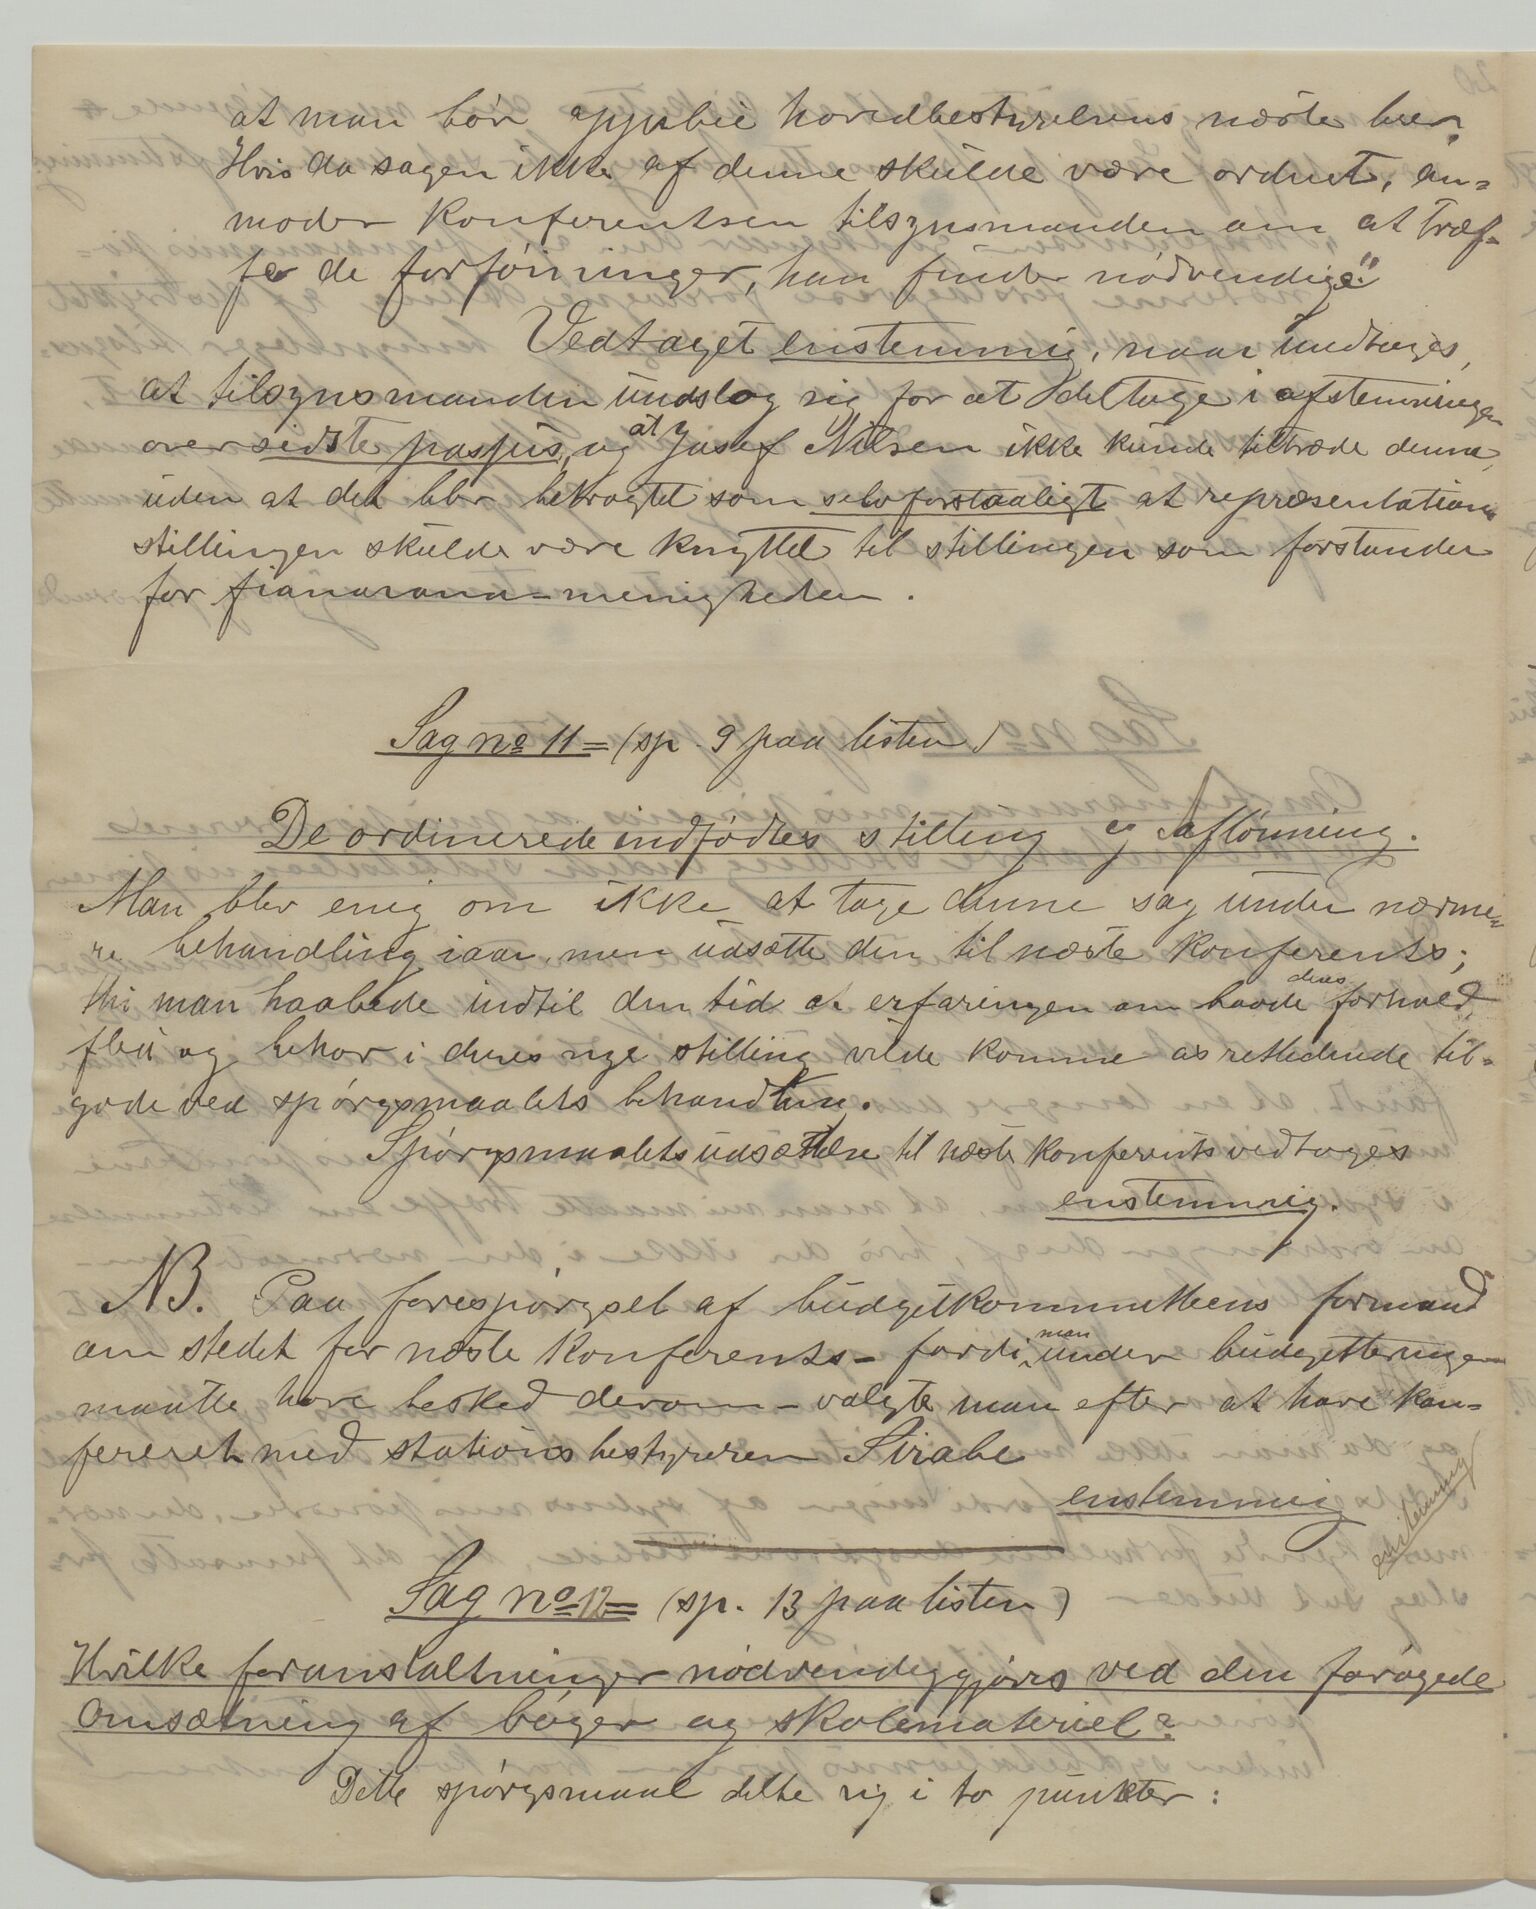 at man bör oppebie hovedbestyrelsens næste brev.
Hvis da sagen ikke af denne skulde være ordnet, an=
moder Konferentsen tilsynsmanden om at træf-
fe de forföininger, han finder nödvendige."
Vedtaget enstemmig, naar undtages,
at tilsynsmanden undslog sig for at deltage i afstemningen
over sidste passus, og at Josef Nilsen ikke kunde tiltræde denne,
uden at det blev betragtet som selvforstaaligt at repræsentations
stillingen skulde være knyttet til stillingen som forstander
for fianarana-menigheden.
Sag no 11 = (sp. 9 paa listen)
De ordinerede indfödtes stilling og aflönning.
Man blev enig om ikke at tage denne sag under nærme=
re behandling iaar, men udsætte den til næste Konferents;
thi man haabede indtil den tid at erfaringen om baade deres forhold,
flid og behov i deres nye stilling vilde komme os retledende til=
gode ved spörgsmaalets behandling.
Spörgsmaalets udsættelse til næste Konferents vedtages
enstemmig.
NB. Paa forespörgsel af büdgetkommitteens formand
om stedet for næste Konferents - fordi man under büdgetteringen
maatte have besked derom - valgte man efter at have kon=
fereret med stationsbestyreren Sirabe
enstemmig
enstemmig
Sag no 12 = (sp. 13 paa listen)
Hvilke foranstaltninger nödvendiggjöres ved den forögede
Omsætning af böger og skolemateriel?
Dette spörgsmaal delte sig i to punkter: